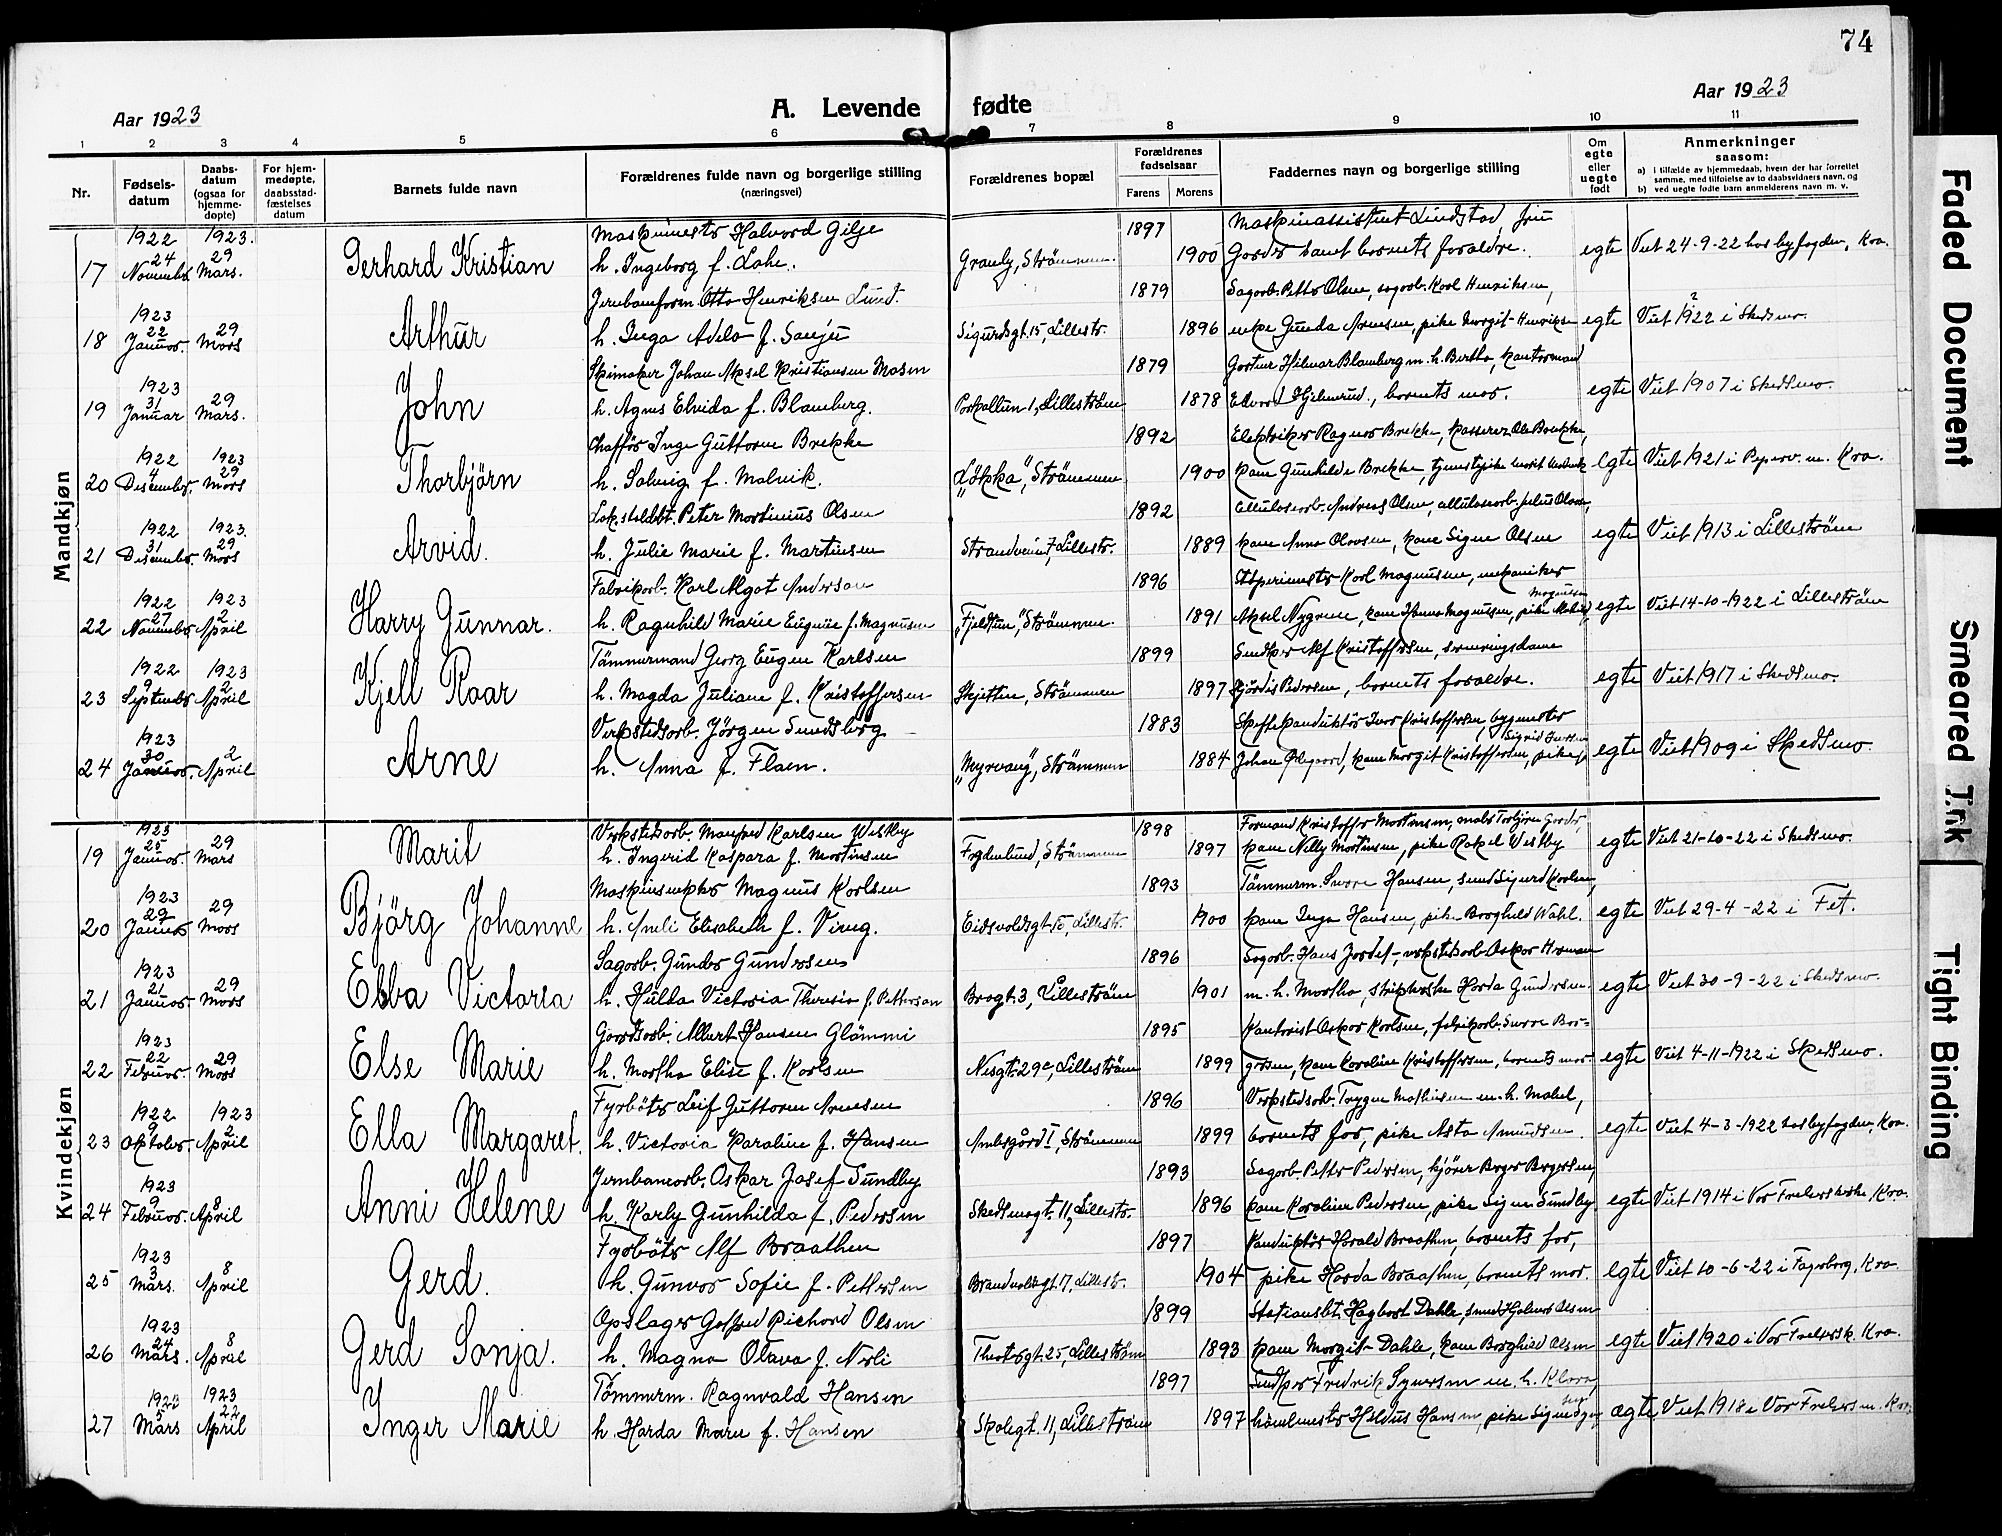 74
Aar 1923
A. Levende fødte
Aar 1923
1 2 3 4 5 6 7 8 9 10 11
Nr.
Fødsels-
datum
Daabs-
datum
(ogsaa for
hjemme-
døpte)
For hjem-
medøpte,
daabsstad-
fæstelses
datum
Barnets fulde navn
Forældrenes fulde navn og borgerlige stilling
(næringsvei)
Forældrenes bopæl
Forældrenes
fødselsaar
Farens Morens
Faddernes navn og borgerlige stilling
Om
egte
eller
uegte
født
Anmerkninger
saasom:
a) i tilfælde av hjemmedaab, hvem der har forrettet
samme, med tilføielse av to daabsvidners navn, og
b) ved uegte fødte barn anmelderens navn m. v.
Mandkjøn
1922 1923. Maskinmester Halvord Gilje 1897 Maskinassistent Lindstad, fru
17 24 November 29 Mars. Gerhard Kristian h. Ingeborg f. Lohe. Granly, Strømmen. 1900 Garder samt barnets forældre. egte Viet 24-9-22 hos byfogden, Kra.
1923 Jernbaneform. Otto Henriksen Lund. 1879 Sagarb. Petter Olsen, sagarb. Karl Henriksen,
18 22 Januar. 29 Mars Arthur h. Inga Adela f. Sanju Sigurdsgt. 15, Lillestr. 1896 enke Gunda Arnesen, pike Margit Henriksen egte Viet 1922 ? i Skedsmo.
1923 Skimaker Johan Aksel Kristiansen Mosen 1879 Gartner Hilmar Blomberg m. h. Bertha, kontormand
19 31 Januar 29 Mars. John h. Agnes Elvida f. Blomberg. Postpallen 1, Lillestrøm 1878 Edvard Hjelmerud, barnets mor. egte Viet 1907 i Skedsmo.
1922 1923 Chaffør Inge Guttorm Brekke 1892 Elektriker Ragnar Brekke, kasserer Ole Brekke,
20 4 Desember. 29 Mars Thorbjörn h. Solveig f. Malvik. "Løkka", Strømmen 1900 kone Gunhilda Brekke, tjenestepike egte Viet 1921 i Piperv. m. Kra.
1922 1923. Lok.stallbt. Peter Martinius Olsen 1892 Cellulosearb. Andreas Olsen, cellulosearb. Julius Olsen,
21 31 Desember 29 Mars Arvid. h. Julie Marie f. Martinsen Strandveien 7, Lillestr. 1889 kone Anna Olausen, kone Signe Olsen egte Viet 1913 i Lilleström
1922 1923 Fabrikarb. Karl Algot Anderson 1896 Støperimester Karl Magnusen, mekaniker
22 27 November 2 April Harry Gunnar. h. Ragnhild Marie Eugenie f. Magnusen "Fjeldtun", Strømmen. 1891 Aksel Nygrene, kone Hanna Magnusen, pike Magnusen egte Viet 14-10-1922 i Lilleström
1922 1923 Tömmermand Georg Eugen Karlsen 1899 Snedker Alf Kristoffersen, serveringsdame
23 9 September 2 April Kjell Roar h. Magda Juliane f. Kristoffersen Skjetten, Strømmen 1897 Hjördis Pedersen, barnets forældre. egte Viet 1917 i Skedsmo.
1923 Verkstedsarb. Jörgen Sundsberg 1883 Ivar Kristoffersen, bygmester
24 30 Januar. 2 April Arne h. Anna f. Flaen. "Myrvang", Strømmen 1884 Johan Ølegaard, kone Margit Kristoffersen, pike Sigrid egte Viet 1909 i Skedsmo.
Kvindekjøn
1923 Verkstedsarb. Manfred Karlsen Westby 1898 Formand Kristoffer Martinsen, maler Torbjörn Garder,
19 25 Januar. 29 Mars Marit h. Ingerid Kaspara f. Martinsen Fogdenlund, Strømmen 1897 kone Nelly Martinsen, pike Rakel Westby egte Viet 21-10-22 i Skedsmo.
1923 Maskinsnekker Magnus Karlsen 1893 Tömmerm. Sverre Hansen, snek Sigurd Karlsen,
20 29 Januar 29 Mars Björg Johanne h. Anli Elisabeth f. Vireg. Eidsvoldsgt. 15, Lillestr. 1900 kone Inga Hansen, pike Borghild Wahl. egte Viet 29-4-22 i Fet.
1923 Sagarb. Gunder Gundersen 1896 Sagarb. Hans Jordet, verkstedsarb. Oskar Herman
21 21 Januar. 29 Mars Ebba Victoria h. Hulda Victoria Theresia f. Petterson Bragt. 3, Lillestrøm 1901 m. h. Martha, Harda Gundersen. egte Viet 30-9-22 i Skedsmo.
1923 Gaardsarb. Albert Hansen Glömmi 1895 Kontorist Oskar Karlsen, fabrikarb. Sverre Bor-
22 22 Februar. 29 Mars Else Marie h. Martha Elise f. Karlsen Nesgt. 29c, Lillestrøm 1899 gersen, kone Karoline Kristoffersen, barnets mor egte Viet 4-11-1922 i Skedsmo.
1922 1923 Fyrbøter Leif Guttorm Arnesen 1896 Verkstedsarb. Trygve Mathisen m. h. Mabel,
23 9 Oktober. 2 April Ella Margaret. h. Victoria Karoline f. Hansen Amlesgård I, Strømmen 1899 barnets far, pike Asta Amundsen. egte Viet 4-3-1922 hos byfogden, Kra.
1923 Jernbanearb. Oskar Josef Sundby 1893 Sagarb. Petter Pedersen, kjører Birger Birgersen,
24 9 Februar. 8 April Anni Helene h. Karly Gunhilda f. Pedersen Skedsmogt. 11, Lillestr. 1896 kone Karoline Pedersen, pike Signe Sundby egte Viet 1914 i Vor Frelsers kirke, Kra.
1923 Fyrbøter Alf Braathen 1897 Konduktør Harald Braathen, barnets far,
25 3 Mars. 8 April Gerd. h. Gunvor Sofie f. Pettersen Brandvoldsgt. 17, Lillestr. 1904 pike Harda Braathen, barnets mor. egte Viet 10-6-22 i Fagerborg, Kra.
1923 Opslager Gotfred Richard Olsen 1899 Stationsbt. Hagbart Dahle, smed Hjalmar Olsen
26 24 Mars. 8 April Gerd Sonja. h. Magna Otava f. Narli Theatergt. 25, Lillestrøm 1893 kone Margit Dahle, kone Borghild Olsen egte Viet 1920 i Vor Frelsersk. Kra.
1923 1923 Tømmerm. Ragnvald Hansen 1897 Snedker Fredrik Syversen m. h. Klara,
27 5 Mars 22 April Inger Marie h. Harda Marie f. Hansen Skolegt. 11, Lillestrøm 1897 Heldus Hansen, pike Signe ægte Viet 1918 i Vor Frelsers m. Kra.
Faded Document
Smeared Ink
Tight Binding